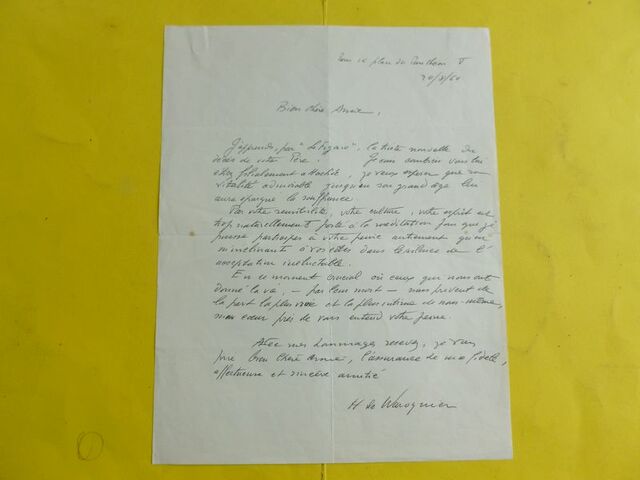 place du Panthéon V
Bien chère Amie,
J'apprends, par "Le Figaro", la triste nouvelle du
décès de votre Père. Je sais combien vous lui
étiez filialement attachée, je veux espérer que sa
vitalité admirable jusqu'en son grand âge lui
aura épargné la souffrance.
votre sensibilité, votre culture, votre esprit est
trop naturellement porté à la méditation pour que je
puisse participer à votre peine autrement qu'en
m'inclinant à vos côtés dans le silence de l'
acceptation inéluctable.
En ce moment crucial où ceux qui nous ont
donné la vie, - par leur mort - nous privent de
la part la plus vraie et la plus intime de nous-même,
mon cœur près de vous entend votre peine.
Avec mes hommages recevez, je vous
prie bien chère Amie, l'assurance de ma fidèle,
affectueuse et sincère amitié
H. de Waroquier